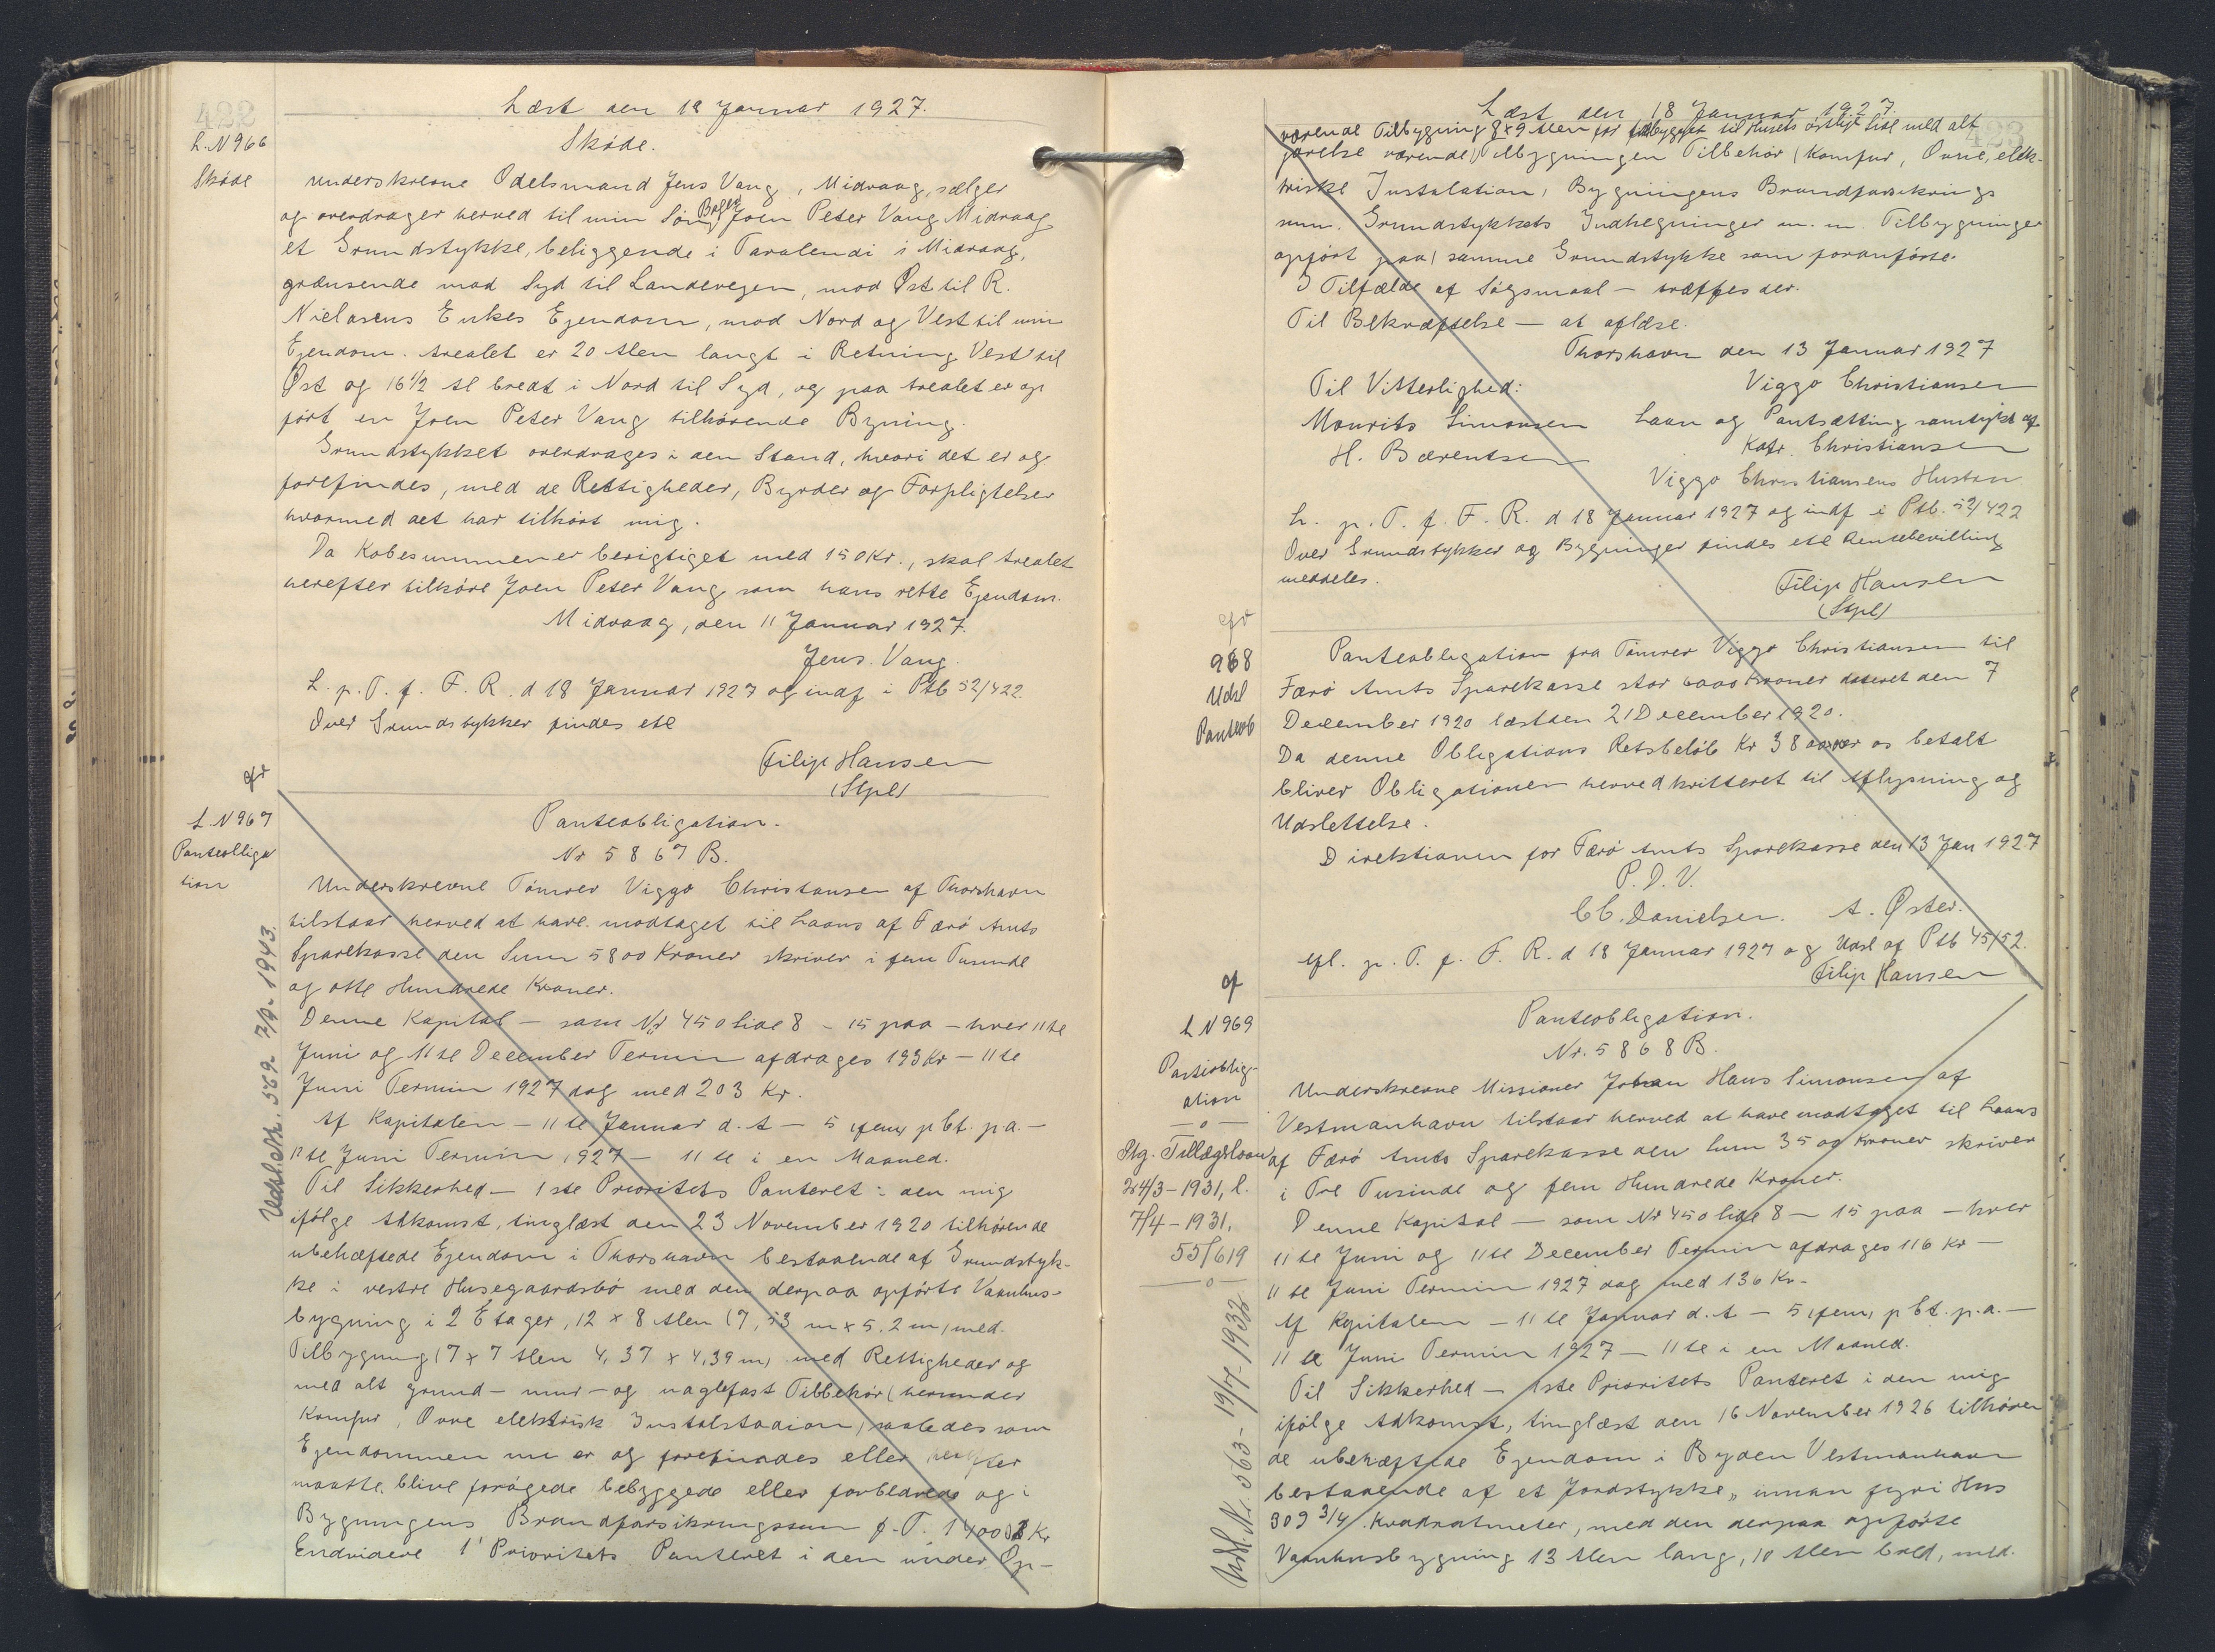 Læst den 18 Januar 1927.
L. N 966
Skøde
Skøde.
Underskrevne Odelsmand Jens Vang, Midvaag, sælger
og overdrager herved til min Søn Joen Peter Vang Midvaag
et Grundstykke, beliggende i Taralendi i Midvaag,
grænsende mod Syd til Landevejen, mod Øst til R.
Nielasens Enkes Ejendom, mod Nord og Vest til min
Ejendom. Arealet er 20 Alen langt i Retning Vest til
Øst og 16 1/2 Al bredt i Nord til Syd, og paa Arealet er op
ført en Joen Peter Vang tilhørende Bygning.
Grundstykket overdrages i den Stand, hvori det er og
forefindes, med de Rettigheder, Byrder og Forpligtelser
hvormed det har tilhørt mig.
Da Købesummen er berigtiget med 150 Kr., skal Arealet
herefter tilhøre Joen Peter Vang som hans rette Ejendom.
Midvaag, den 11 Januar 1927.
Jens Vang.
L. p. T. f. F. R. d 18 Januar 1927 og indf i Ptb 52/422
Over Grundstykker findes etc
Filip Hansen
(Stpl)
L. N 967
Panteobliga
tion
Udsl. Nr. 569 - 7/9 - 1943.
Panteobligation.
Nr 5867 B.
Underskrevne Tømrer Viggo Christansen af Thorshavn
tilstaar herved at have modtaget til Laans af Færø Amts
Sparekasse den Sum 5800 Kroner skriver i fem Tusinde
og otte Hundrede Kroner.
Denne Kapital - som Nr 450 lide 8 - 15 paa - hver 11te
Juni og 11te December Termin afdrages 193 Kr - 11te
Juni Termin 1927 dog med 203 Kr.
Af Kapitalen - 11te Januar d. A - 5 (fem) pCt. p.a. -
11te Juni Termin 1927 - 11te i en Maaned.
Til Sikkerhed - 1ste Prioritets Panteret i den mig
ifølge Adkomst, tinglæst den 23 November 1920 tilhørende
ubehæftede Ejendom i Thorshavn bestaaende af Grundstyk-
ke i vestre Husegaardsbø med den derpaa opførte Vaanhus-
bygning i 2 Etager, 12 x 8 Alen (7,53 m x 5.2 m) med
Tilbygning (7 x 7 Alen 4,37 x 4,39 m) med Rettigheder og
med alt grund - mur - og naglefast Tilbehør (herunder
Komfur, Ovne elektrisk Instalstadion) saaledes som
Ejendommen nu er og forefindes eller herefter
maatte blive forøgede bebyggede eller forbedrede og i
Bygningens Brandforsikringssum p. T. Kr
Endvidere 1' Prioritets Panteret i den under Op-
Læst den 18 Januar 1927.
værende Tilbygning 8 x 9 Alen for tilbygget til Husets østlige Side med alt
førelse værende Tilbygningen Tilbehør (Komfur, Ovne, elek-
triske Instalation, Bygningens Brandforsikrings
sum. Grundstykkets Indhegninger m. m. Tilbygninger
opført paa) samme Grundstykke som foranførte.
I Tilfælde af Søgsmaal - træffes der.
Til Bekræftelse - at aflæse.
Thorshavn den 13 Januar 1927
Til Vitterlighed: Viggo Christiansen
Mourits Simonsen Laan og Pantsætting samtykt af
H. Bærentsen Katr. Christiansen
Viggo Christiansens Hustru
L. p. T. f. F. R. d 18 Januar 1927 og indf i Ptb. 52/422
Over Grundstykker og Bygninger findes etc Rentebevilling
meddeles.
Filip Hansen
(Stpl)
968
Udsl
Panteob
Panteobligation fra Tømrer Viggo Christiansen til
Færø Amts Sparekasse stor 6000 Kroner dateret den 7
December 1920 læst den 21 December 1920.
Da denne Obligations Retsbeløb Kr 3800 er os betalt
bliver Obligationen herved kvitteret til Aflysning og
Udslettelse.
Direktionen for Færø Amts Sparekasse den 13 Jan 1927
P. D. V.
C.C. Danielsen. A. Øster.
Afl. p. T. f. F. R. d 18 Januar 1927 og Udsl af Ptb 45/52.
Filip Hansen
L N 969
Panteoblig-
ation
Stg. Tillægslaan
24/3 - 1931, l.
7/4 - 1931.
55/619
Udsl. Nr. 563 - 19/7 - 1932
Panteobligation.
Nr. 5868 B.
Underskrevne Missionær Johan Hans Simonsen af
Vestmanhavn tilstaar herved at have modtaget til Laans
af Færø Amts Sparekasse den Sum 3500 Kroner skriver
i Tre Tusinde og fem Hundrede Kroner.
Denne Kapital - som Nr 450 lide 8 - 15 paa - hver
11te Juni og 11te December Termin afdrages 116 Kr -
11te Juni Termin 1927 dog med 136 Kr -
Af Kapitalen - 11te Januar d. A - 5 (fem) pCt. p.a. -
11te Juni Termin 1927 - 11te i en Maaned.
Til Sikkerhed - 1ste Prioritets Panteret i den mig
ifølge Adkomst, tinglæst den 16 November 1926 tilhøren
de ubehæftede Ejendom i Byden Vestmanhavn
bestaaende af et Jordstykke, innan fyri Hus
309 3/4 Kvadratmeter, med den derpaa opførte
Vaanhusbygning 13 Alen lang, 10 Alen bred, med